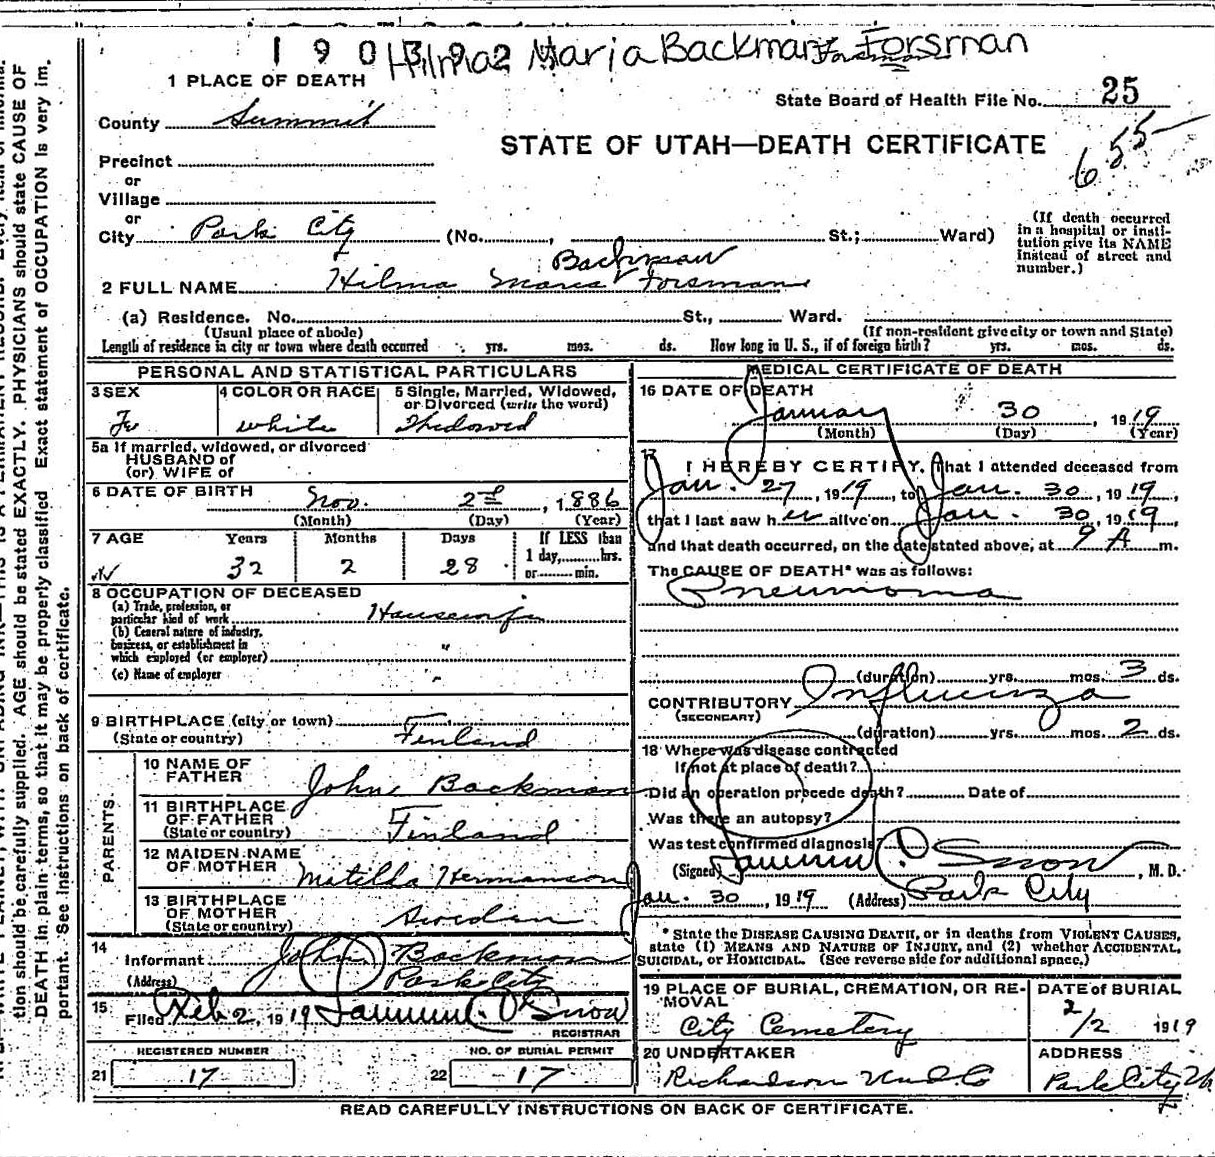 1 9 0 3 9 2 Hilma Maria Backman Forsman
Forsman
1 PLACE OF DEATH
State Board of Health File No. 25
County Summit
STATE OF UTAH—DEATH CERTIFICATE
655
Precinct
or
Village
or
City Park City (No. , St.; Ward)
(If death occurred
in a hospital or insti-
tution give its NAME
instead of street and
number.)
Backman
2 FULL NAME Hilma Maria Forsman
(a) Residence. No. St., Ward.
(Usual place of abode) (If non-resident give city or town and State)
Length of residence in city or town where death occurred yrs. mos. ds. How long in U. S., if of foreign birth? yrs. mos. ds.
PERSONAL AND STATISTICAL PARTICULARS
3 SEX 4 COLOR OR RACE 5 Single, Married, Widowed,
or Divorced (write the word)
Fe white Widowed
5a If married, widowed, or divorced
HUSBAND of
(or) WIFE of
6 DATE OF BIRTH Nov. 2d, 1886
(Month) (Day) (Year)
7 AGE Years Months Days If LESS than
1 day, hrs.
or min.
32 2 28
8 OCCUPATION OF DECEASED
(a) Trade, profession, or
particular kind of work Housewife
(b) General nature of industry,
business, or establishment in
which employed (or employer) "
(c) Name of employer "
9 BIRTHPLACE (city or town)
(State or country) Finland
PARENTS
10 NAME OF
FATHER John Backman
11 BIRTHPLACE
OF FATHER
(State or country) Finland
12 MAIDEN NAME
OF MOTHER Matilda Hermanson
13 BIRTHPLACE
OF MOTHER
(State or country) Sweden
14
Informant John Backman
(Address) Park City
15
Filed Feb 2, 1919 C. Snow
REGISTRAR
REGISTERED NUMBER NO. OF BURIAL PERMIT
21 17 22 17
MEDICAL CERTIFICATE OF DEATH
16 DATE OF DEATH
January 30, 1919
(Month) (Day) (Year)
17
I HEREBY CERTIFY, That I attended deceased from
Jan. 27, 1919, to Jan. 30, 1919,
that I last saw her alive on Jan. 30, 1919,
and that death occurred, on the date stated above, at 9 A m.
The CAUSE OF DEATH* was as follows:
Pneumonia
(duration) yrs. mos. 3 ds.
CONTRIBUTORY Influenza
(SECONDARY)
(duration) yrs. mos. 2 ds.
18 Where was disease contracted
If not at place of death?
Did an operation precede death? Date of
Was there an autopsy?
Was test confirmed diagnosis?
(Signed) Snow, M. D.
Jan. 30, 1919 (Address) Park City
* State the DISEASE CAUSING DEATH, or in deaths from VIOLENT CAUSES,
state (1) MEANS AND NATURE OF INJURY, and (2) whether ACCIDENTAL,
SUICIDAL, or HOMICIDAL. (See reverse side for additional space.)
19 PLACE OF BURIAL, CREMATION, OR RE-
MOVAL
City Cemetery
DATE of BURIAL
2/2 1919
20 UNDERTAKER
Richardson Und Co
ADDRESS
Park City Ut
READ CAREFULLY INSTRUCTIONS ON BACK OF CERTIFICATE.
tion should be carefully supplied. AGE should be stated EXACTLY. PHYSICIANS should state CAUSE OF
DEATH in plain terms, so that it may be properly classified. Exact statement of OCCUPATION is very im.
portant. See instructions on back of certificate.